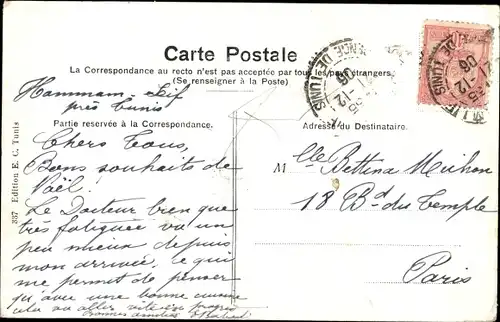 Carte Postale
La Correspondance au recto n'est pas acceptée par tous les pays étrangers.
(Se renseigner à la Poste)
Hammam-Lif
près Tunis
Partie reservée à la Correspondance.
Adresse du Destinataire.
Chers Tous,
Bons souhaits de
Noël.
Le Docteur bien que
très fatiguée va un
peu mieux depuis
mon arrivée, ce qui
me permet de penser
qu'avec une bonne
cela va aller vite en
Bonnes amitiés
Mlle Bettina
18 Bd du Temple
Paris
337 Edition E. C. Tunis
DE TUNIS
12
06
DE TUNIS
12
06